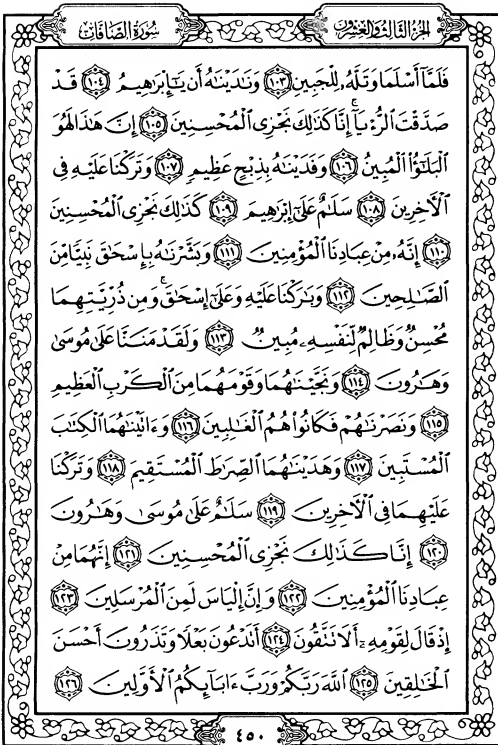 الجزء الثالث والعشرون
سورة الصافات
فَلَمَّآ أَسْلَمَا وَتَلَّهُۥ لِلْجَبِينِ ﴿١٠٣﴾ وَنَٰدَيْنَٰهُ أَن يَٰٓإِبْرَٰهِيمُ ﴿١٠٤﴾ قَدْ
صَدَّقْتَ ٱلرُّءْيَآ ۚ إِنَّا كَذَٰلِكَ نَجْزِى ٱلْمُحْسِنِينَ ﴿١٠٥﴾ إِنَّ هَٰذَا لَهُوَ
ٱلْبَلَٰٓؤُا۟ ٱلْمُبِينُ ﴿١٠٦﴾ وَفَدَيْنَٰهُ بِذِبْحٍ عَظِيمٍ ﴿١٠٧﴾ وَتَرَكْنَا عَلَيْهِ فِى
ٱلْءَاخِرِينَ ﴿١٠٨﴾ سَلَٰمٌ عَلَىٰٓ إِبْرَٰهِيمَ ﴿١٠٩﴾ كَذَٰلِكَ نَجْزِى ٱلْمُحْسِنِينَ
﴿١١٠﴾ إِنَّهُۥ مِنْ عِبَادِنَا ٱلْمُؤْمِنِينَ ﴿١١١﴾ وَبَشَّرْنَٰهُ بِإِسْحَٰقَ نَبِيًّا مِّنَ
ٱلصَّٰلِحِينَ ﴿١١٢﴾ وَبَٰرَكْنَا عَلَيْهِ وَعَلَىٰٓ إِسْحَٰقَ ۚ وَمِن ذُرِّيَّتِهِمَا
مُحْسِنٌ وَظَالِمٌ لِّنَفْسِهِۦ مُبِينٌ ﴿١١٣﴾ وَلَقَدْ مَنَنَّا عَلَىٰ مُوسَىٰ
وَهَٰرُونَ ﴿١١٤﴾ وَنَجَّيْنَٰهُمَا وَقَوْمَهُمَا مِنَ ٱلْكَرْبِ ٱلْعَظِيمِ
﴿١١٥﴾ وَنَصَرْنَٰهُمْ فَكَانُوا۟ هُمُ ٱلْغَٰلِبِينَ ﴿١١٦﴾ وَءَاتَيْنَٰهُمَا ٱلْكِتَٰبَ
ٱلْمُسْتَبِينَ ﴿١١٧﴾ وَهَدَيْنَٰهُمَا ٱلصِّرَٰطَ ٱلْمُسْتَقِيمَ ﴿١١٨﴾ وَتَرَكْنَا
عَلَيْهِمَا فِى ٱلْءَاخِرِينَ ﴿١١٩﴾ سَلَٰمٌ عَلَىٰ مُوسَىٰ وَهَٰرُونَ
﴿١٢٠﴾ إِنَّا كَذَٰلِكَ نَجْزِى ٱلْمُحْسِنِينَ ﴿١٢١﴾ إِنَّهُمَا مِنْ
عِبَادِنَا ٱلْمُؤْمِنِينَ ﴿١٢٢﴾ وَإِنَّ إِلْيَاسَ لَمِنَ ٱلْمُرْسَلِينَ ﴿١٢٣﴾
إِذْ قَالَ لِقَوْمِهِۦٓ أَلَا تَتَّقُونَ ﴿١٢٤﴾ أَتَدْعُونَ بَعْلًا وَتَذَرُونَ أَحْسَنَ
ٱلْخَٰلِقِينَ ﴿١٢٥﴾ ٱللَّهَ رَبَّكُمْ وَرَبَّ ءَابَآئِكُمُ ٱلْأَوَّلِينَ ﴿١٢٦﴾
٤٥٠